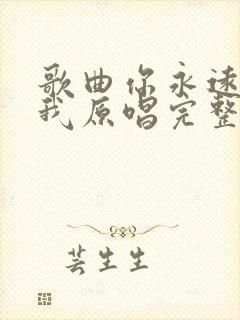 歌曲你永远
我原唱完整
芸生生